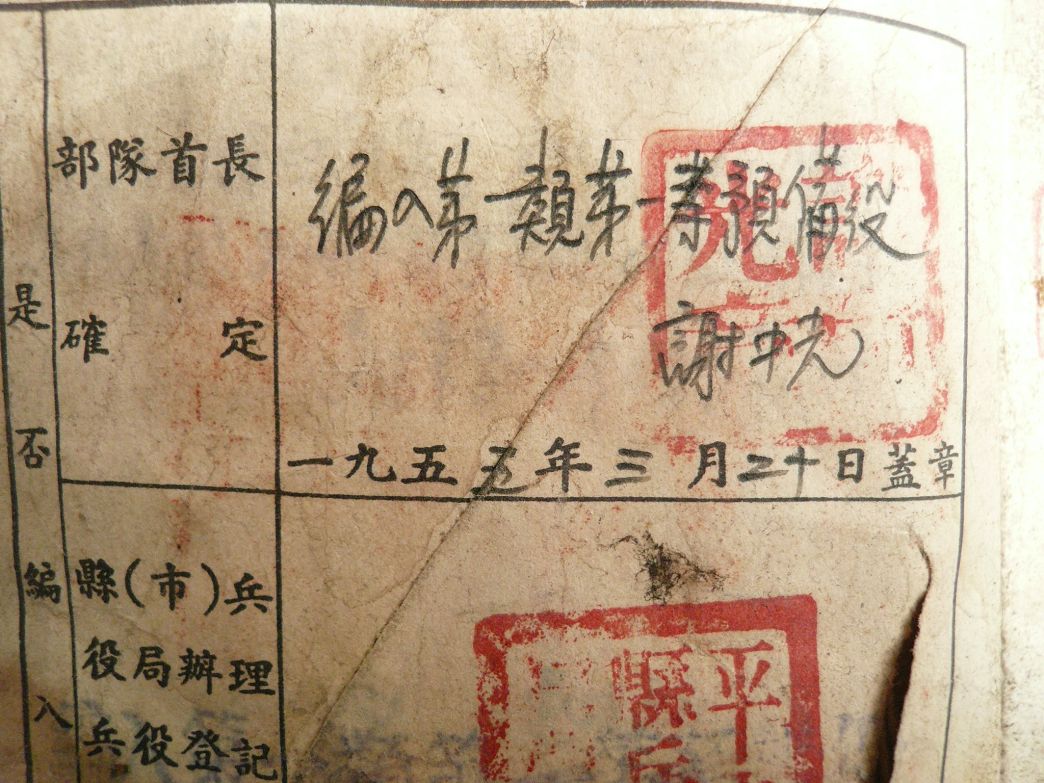 是否編入
部隊首長
確定
編入第一類第一等預備役
謝中光
一九五五年三月二十日蓋章
縣(市)兵
役局辦理
兵役登記
平
縣兵